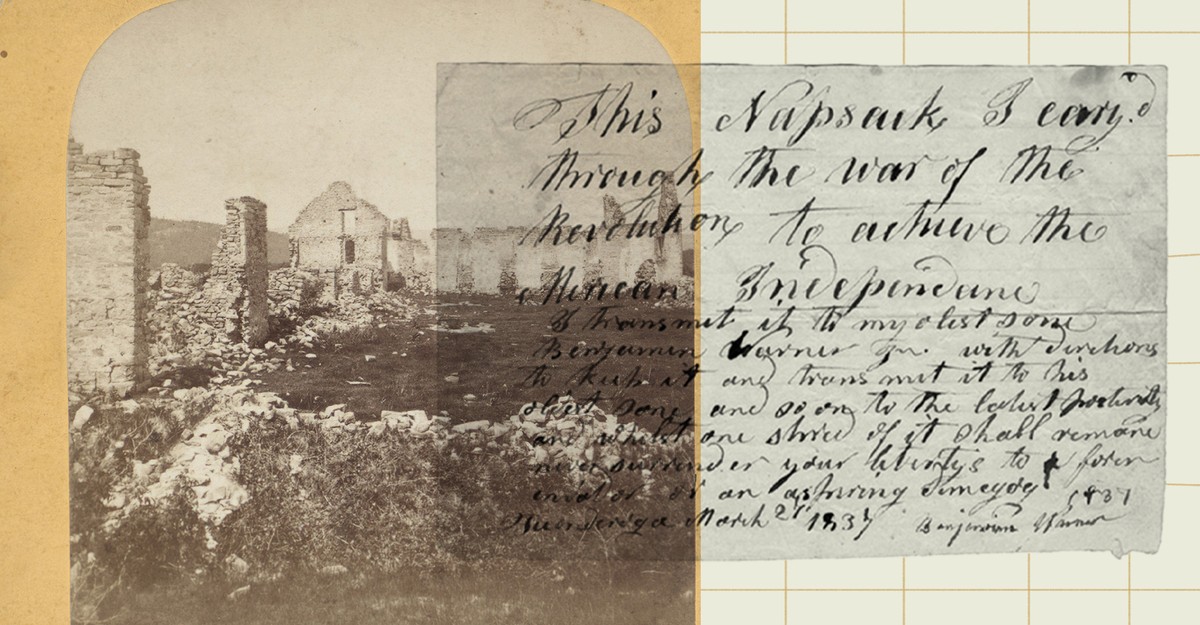 This Napsack I cary.d
through the war of the
Revolution to achieve the
Merican Independence
I transmit it to my olest sone
Benjamin Warner Jr. with directions
to keep it and transmit it to his
oldest sone and so on to the latest posterity
and whilst one shred of it shall remane
never surrender your libertys to a foren
envador or an aspiring
Ticonderoga March 1837 Benjamin Warner 1837